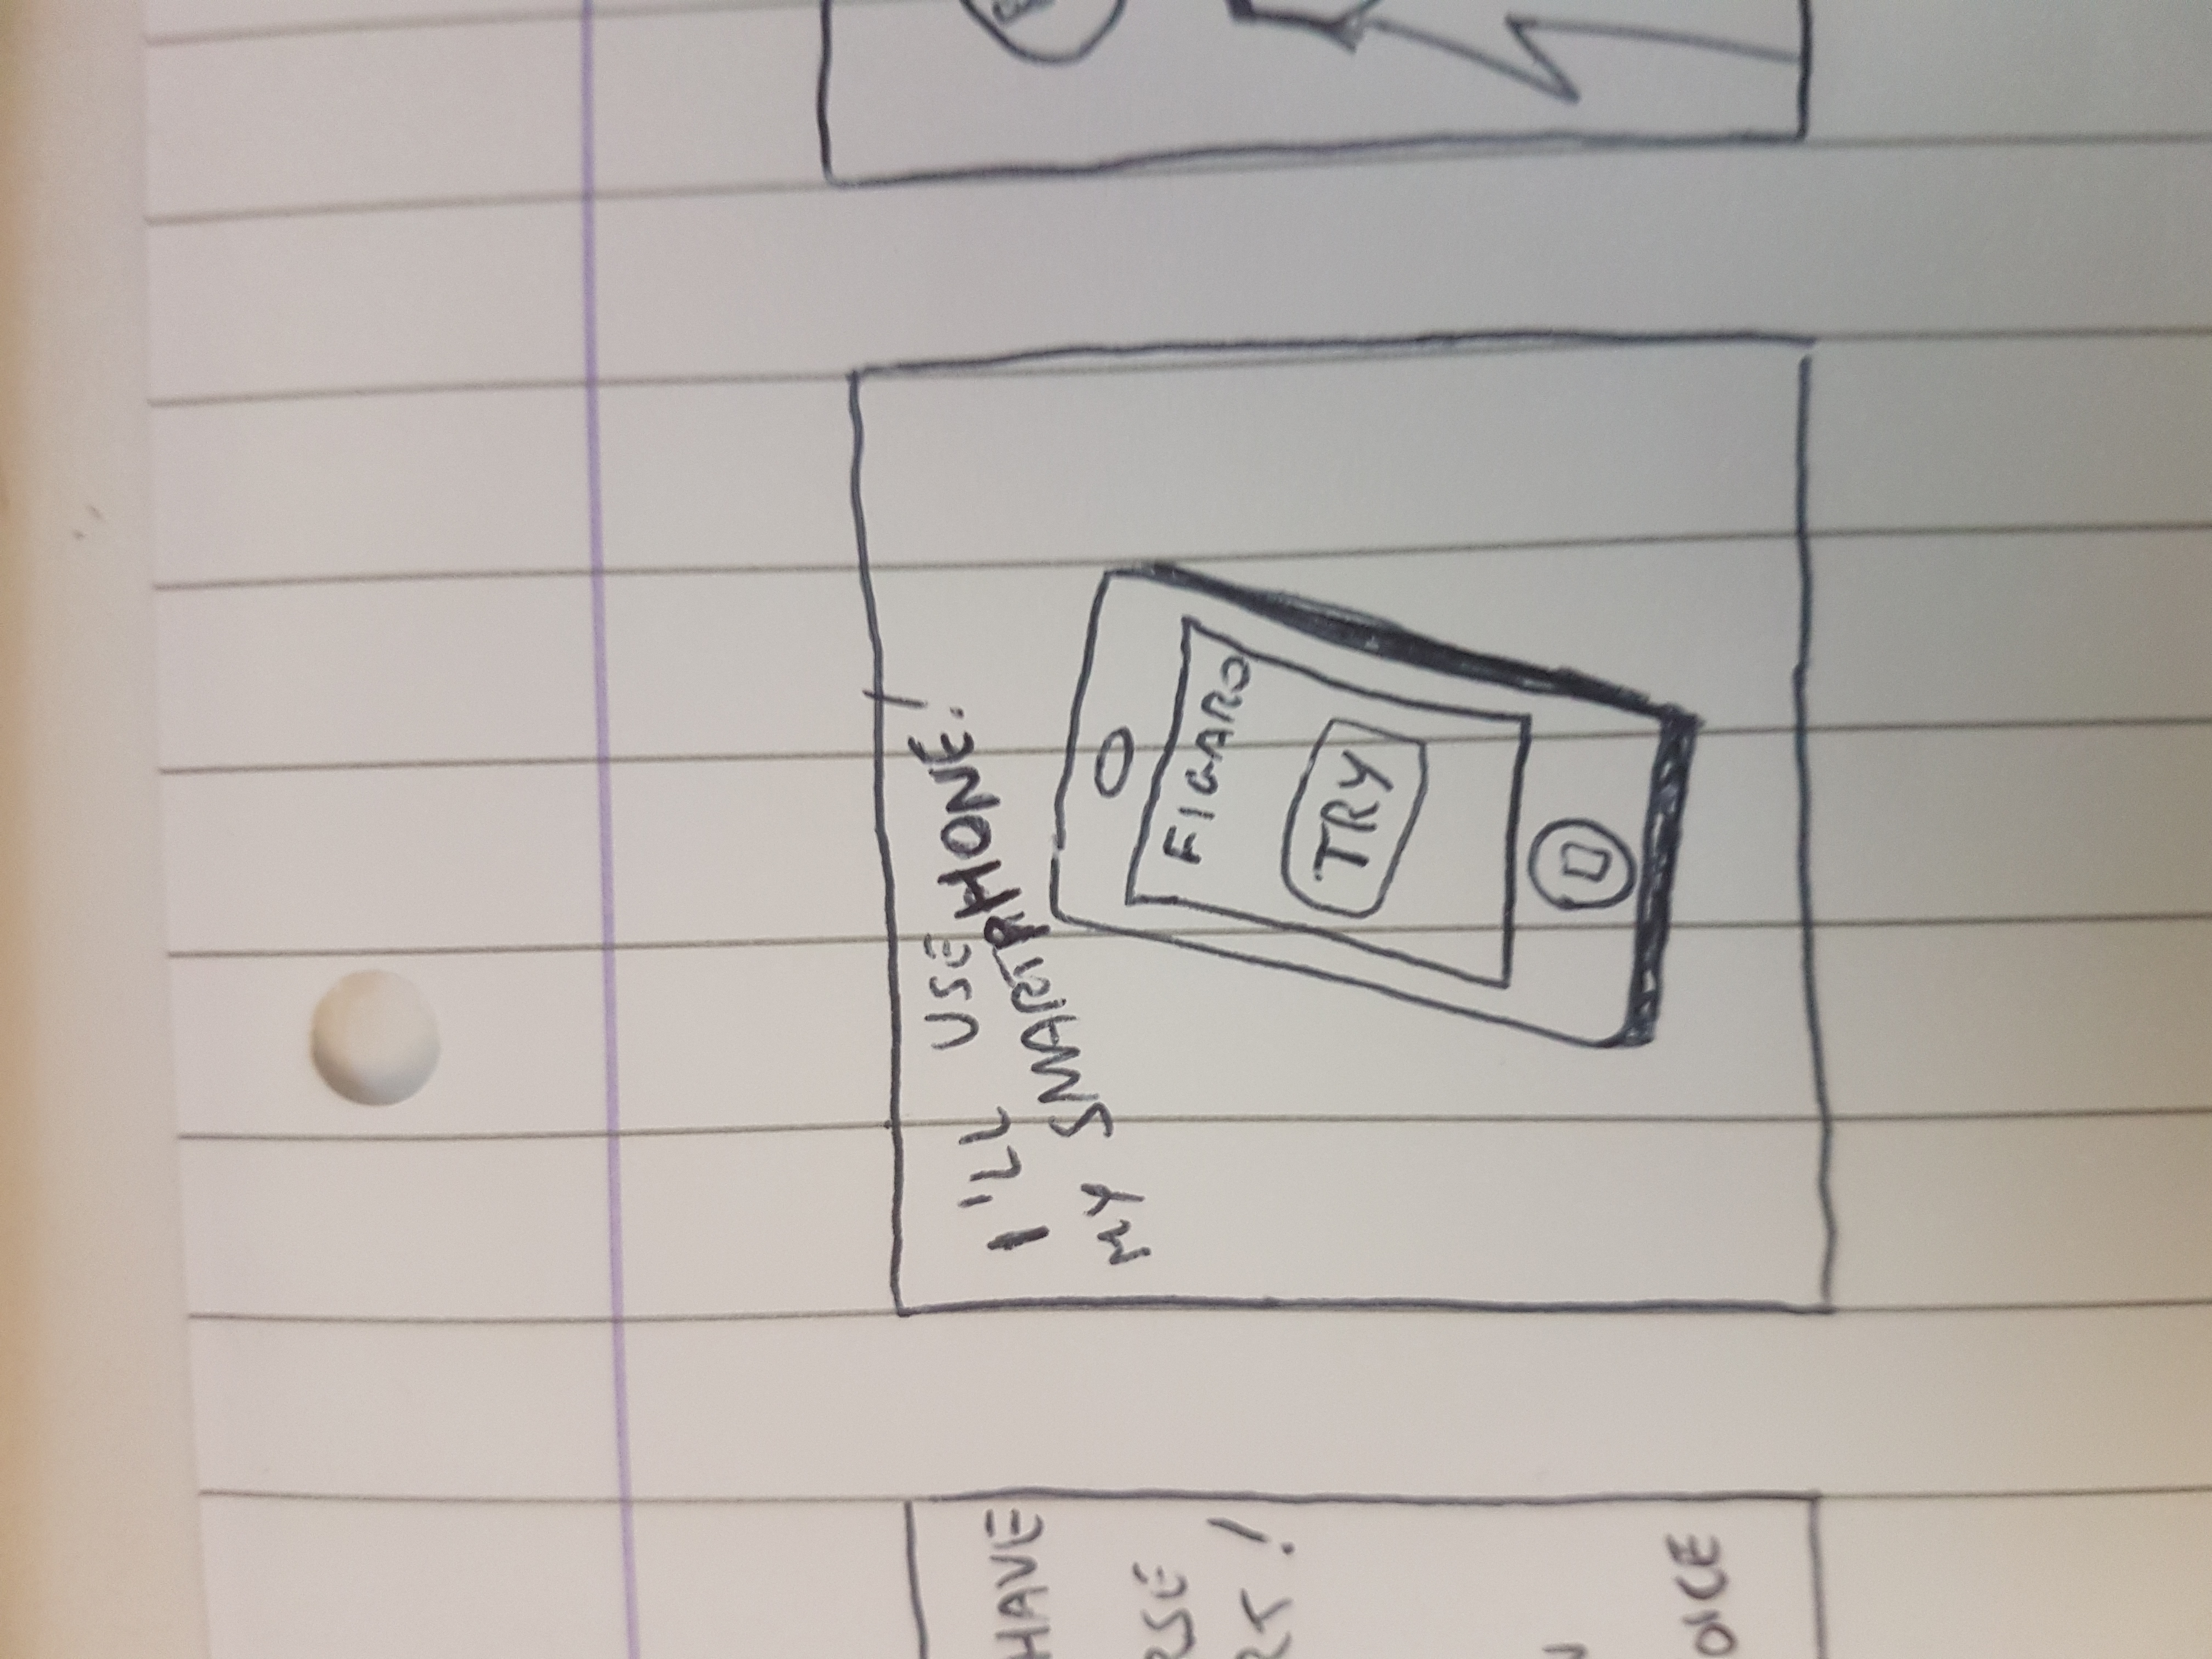 HAVE
RSE
RT!
N
OICE
I'LL USE
MY SMARTPHONE!
FIGARO
TRY